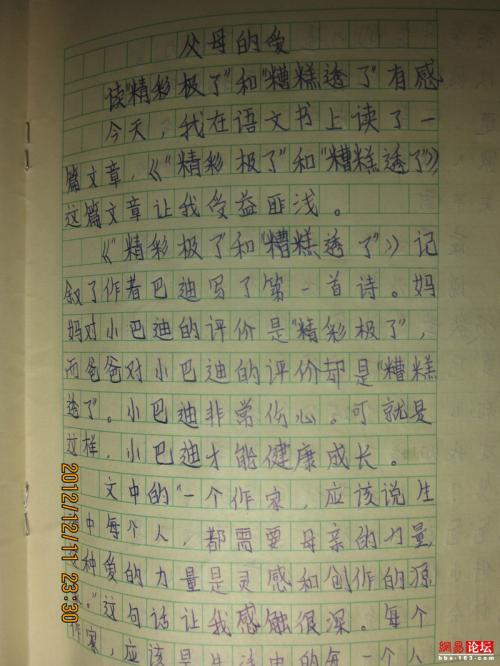 父母的爱
读"精彩极了"和"糟糕透了"有感
今天,我在语文书上读了一
篇文章,《"精彩极了"和"糟糕透了"》
这篇文章让我受益匪浅。
《"精彩极了和"糟糕透了"》记
叙了作者巴迪写了第一首诗。妈
妈对小巴迪的评价是"精彩极了",
而爸爸对小巴迪的评价却是"糟糕
透了"。小巴迪非常伤心。可就是
这样,小巴迪才能健康成长。
文中的"一个作家,应该说生
中每个人,都需要母亲的力量
种爱的力量是灵感和创作的源
。"这句话让我感触很深。每个
作家,应该是生活中的每一个人
2012/12/11 23:30
网易论坛
bbs.163.com